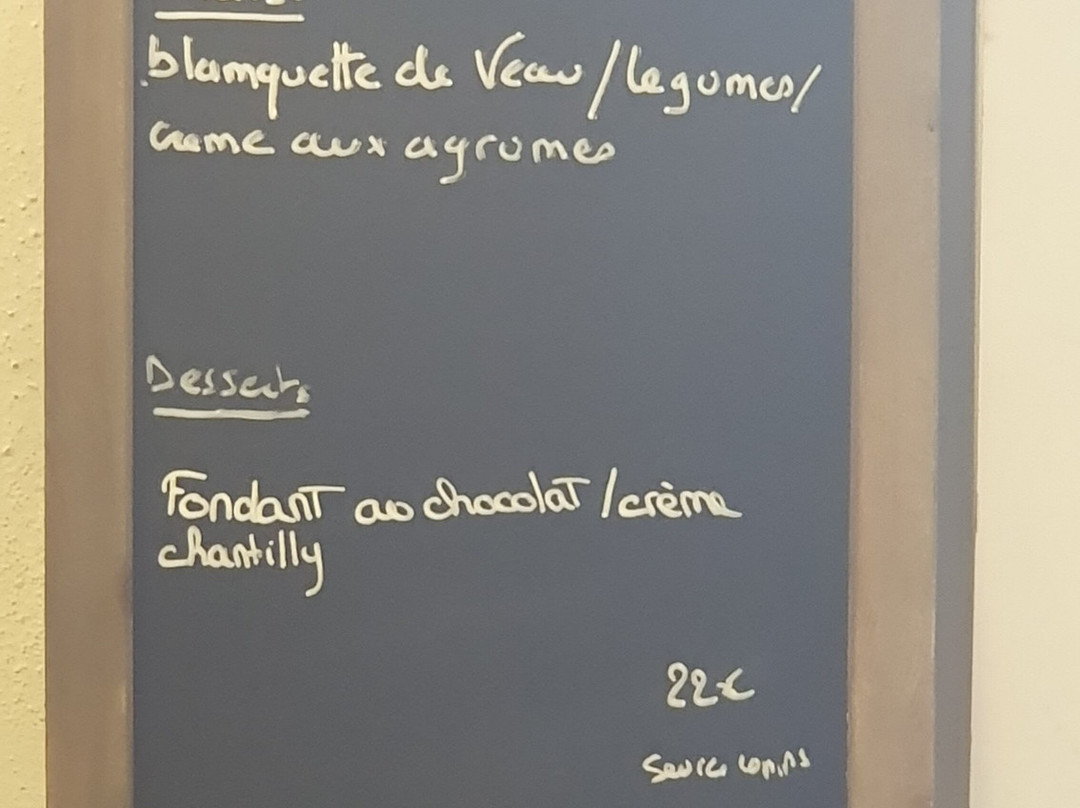 blamquette de Veau / legumes /
creme aux agrumes
Dessert.
Fondant au chocolat / crème
chantilly
22€